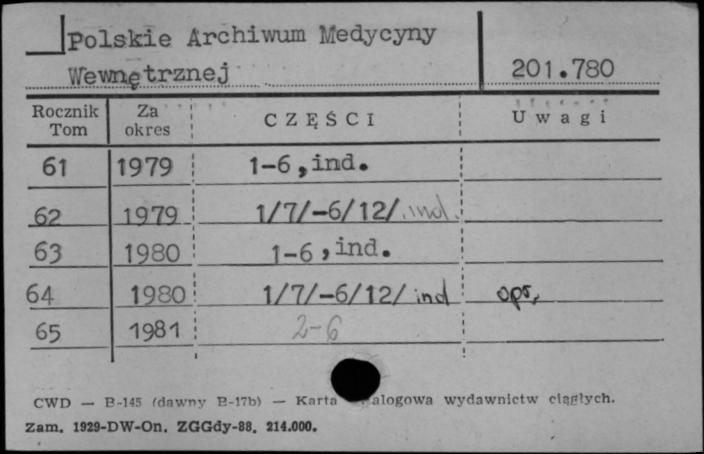 Polskie Archiwum Medycyny
Wewnętrznej 201.780
Rocznik Tom Za okres CZĘŚCI Uwagi
61 1979 1-6,ind.
62 1979 1/7/-6/12/ ind.
63 1980 1-6,ind.
64 1980 1/7/-6/12/ ind opr.
65 1981 2-6
CWD — B-145 (dawny B-17b) — Karta alogowa wydawnictw ciągłych.
Zam. 1929-DW-On. ZGGdy-88. 214.000.